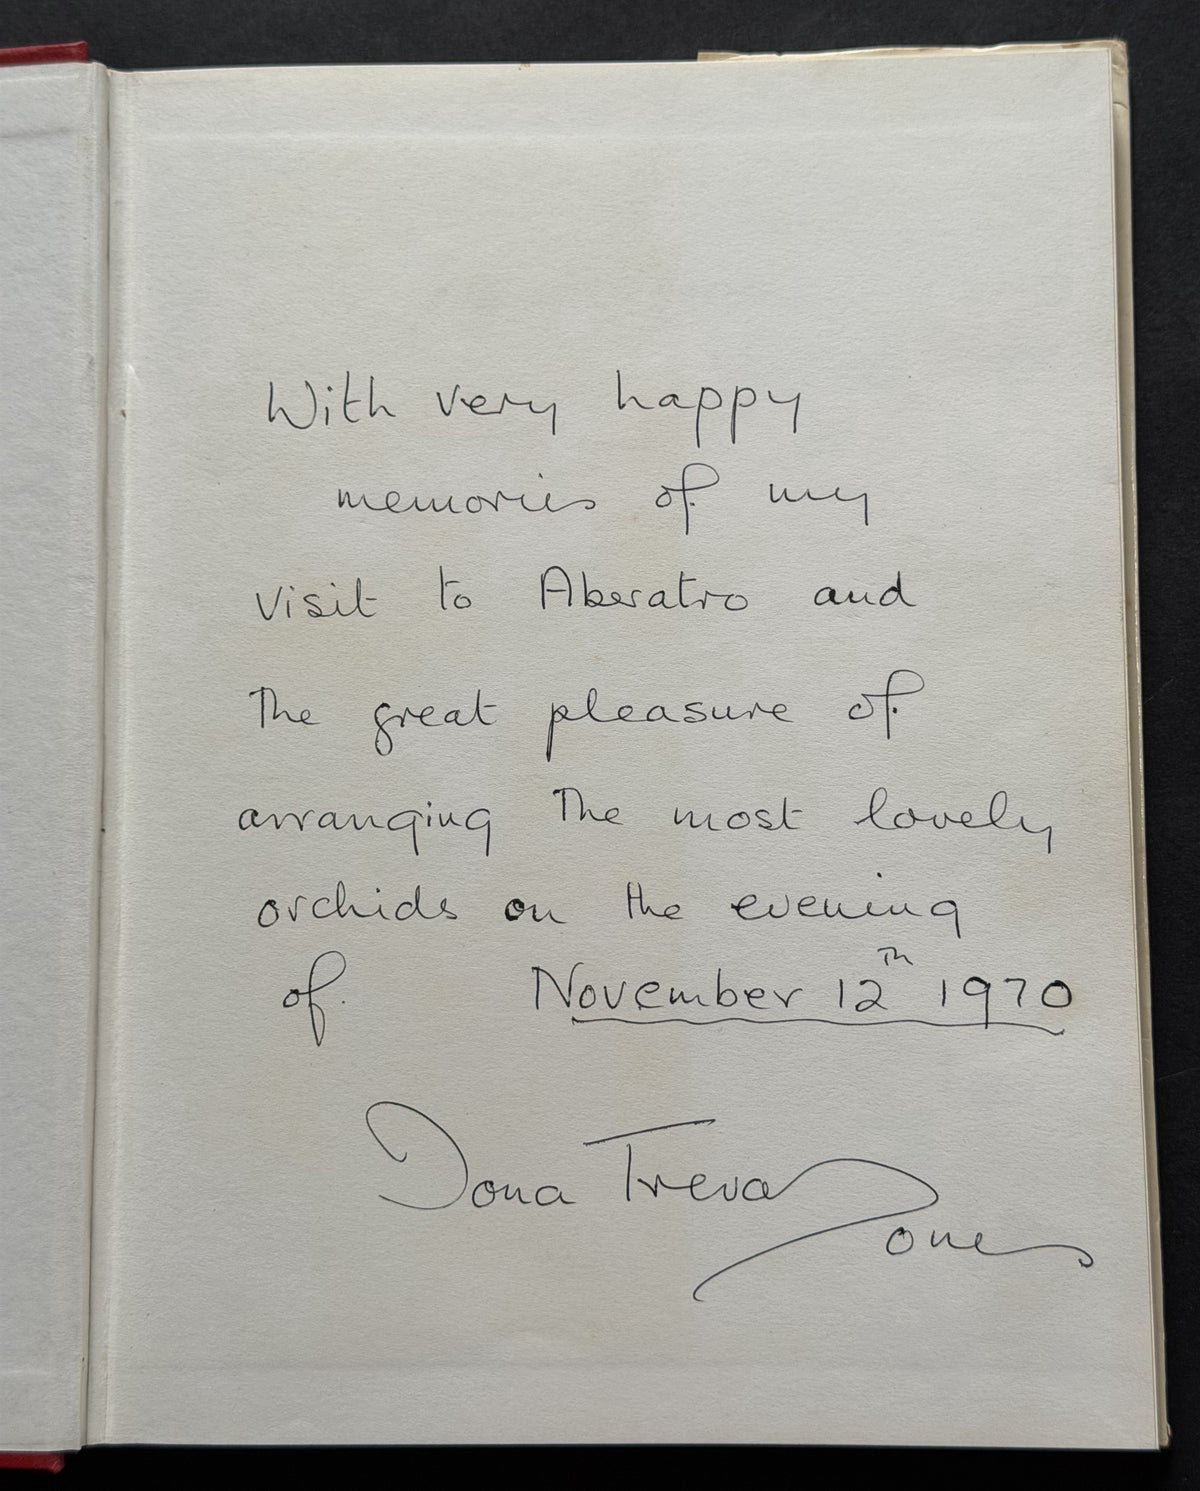 With very happy
memories of my
visit to Aberatro and
The great pleasure of
arranging The most lovely
orchids on the evening
of November 12th 1970
Dona Treva Jones